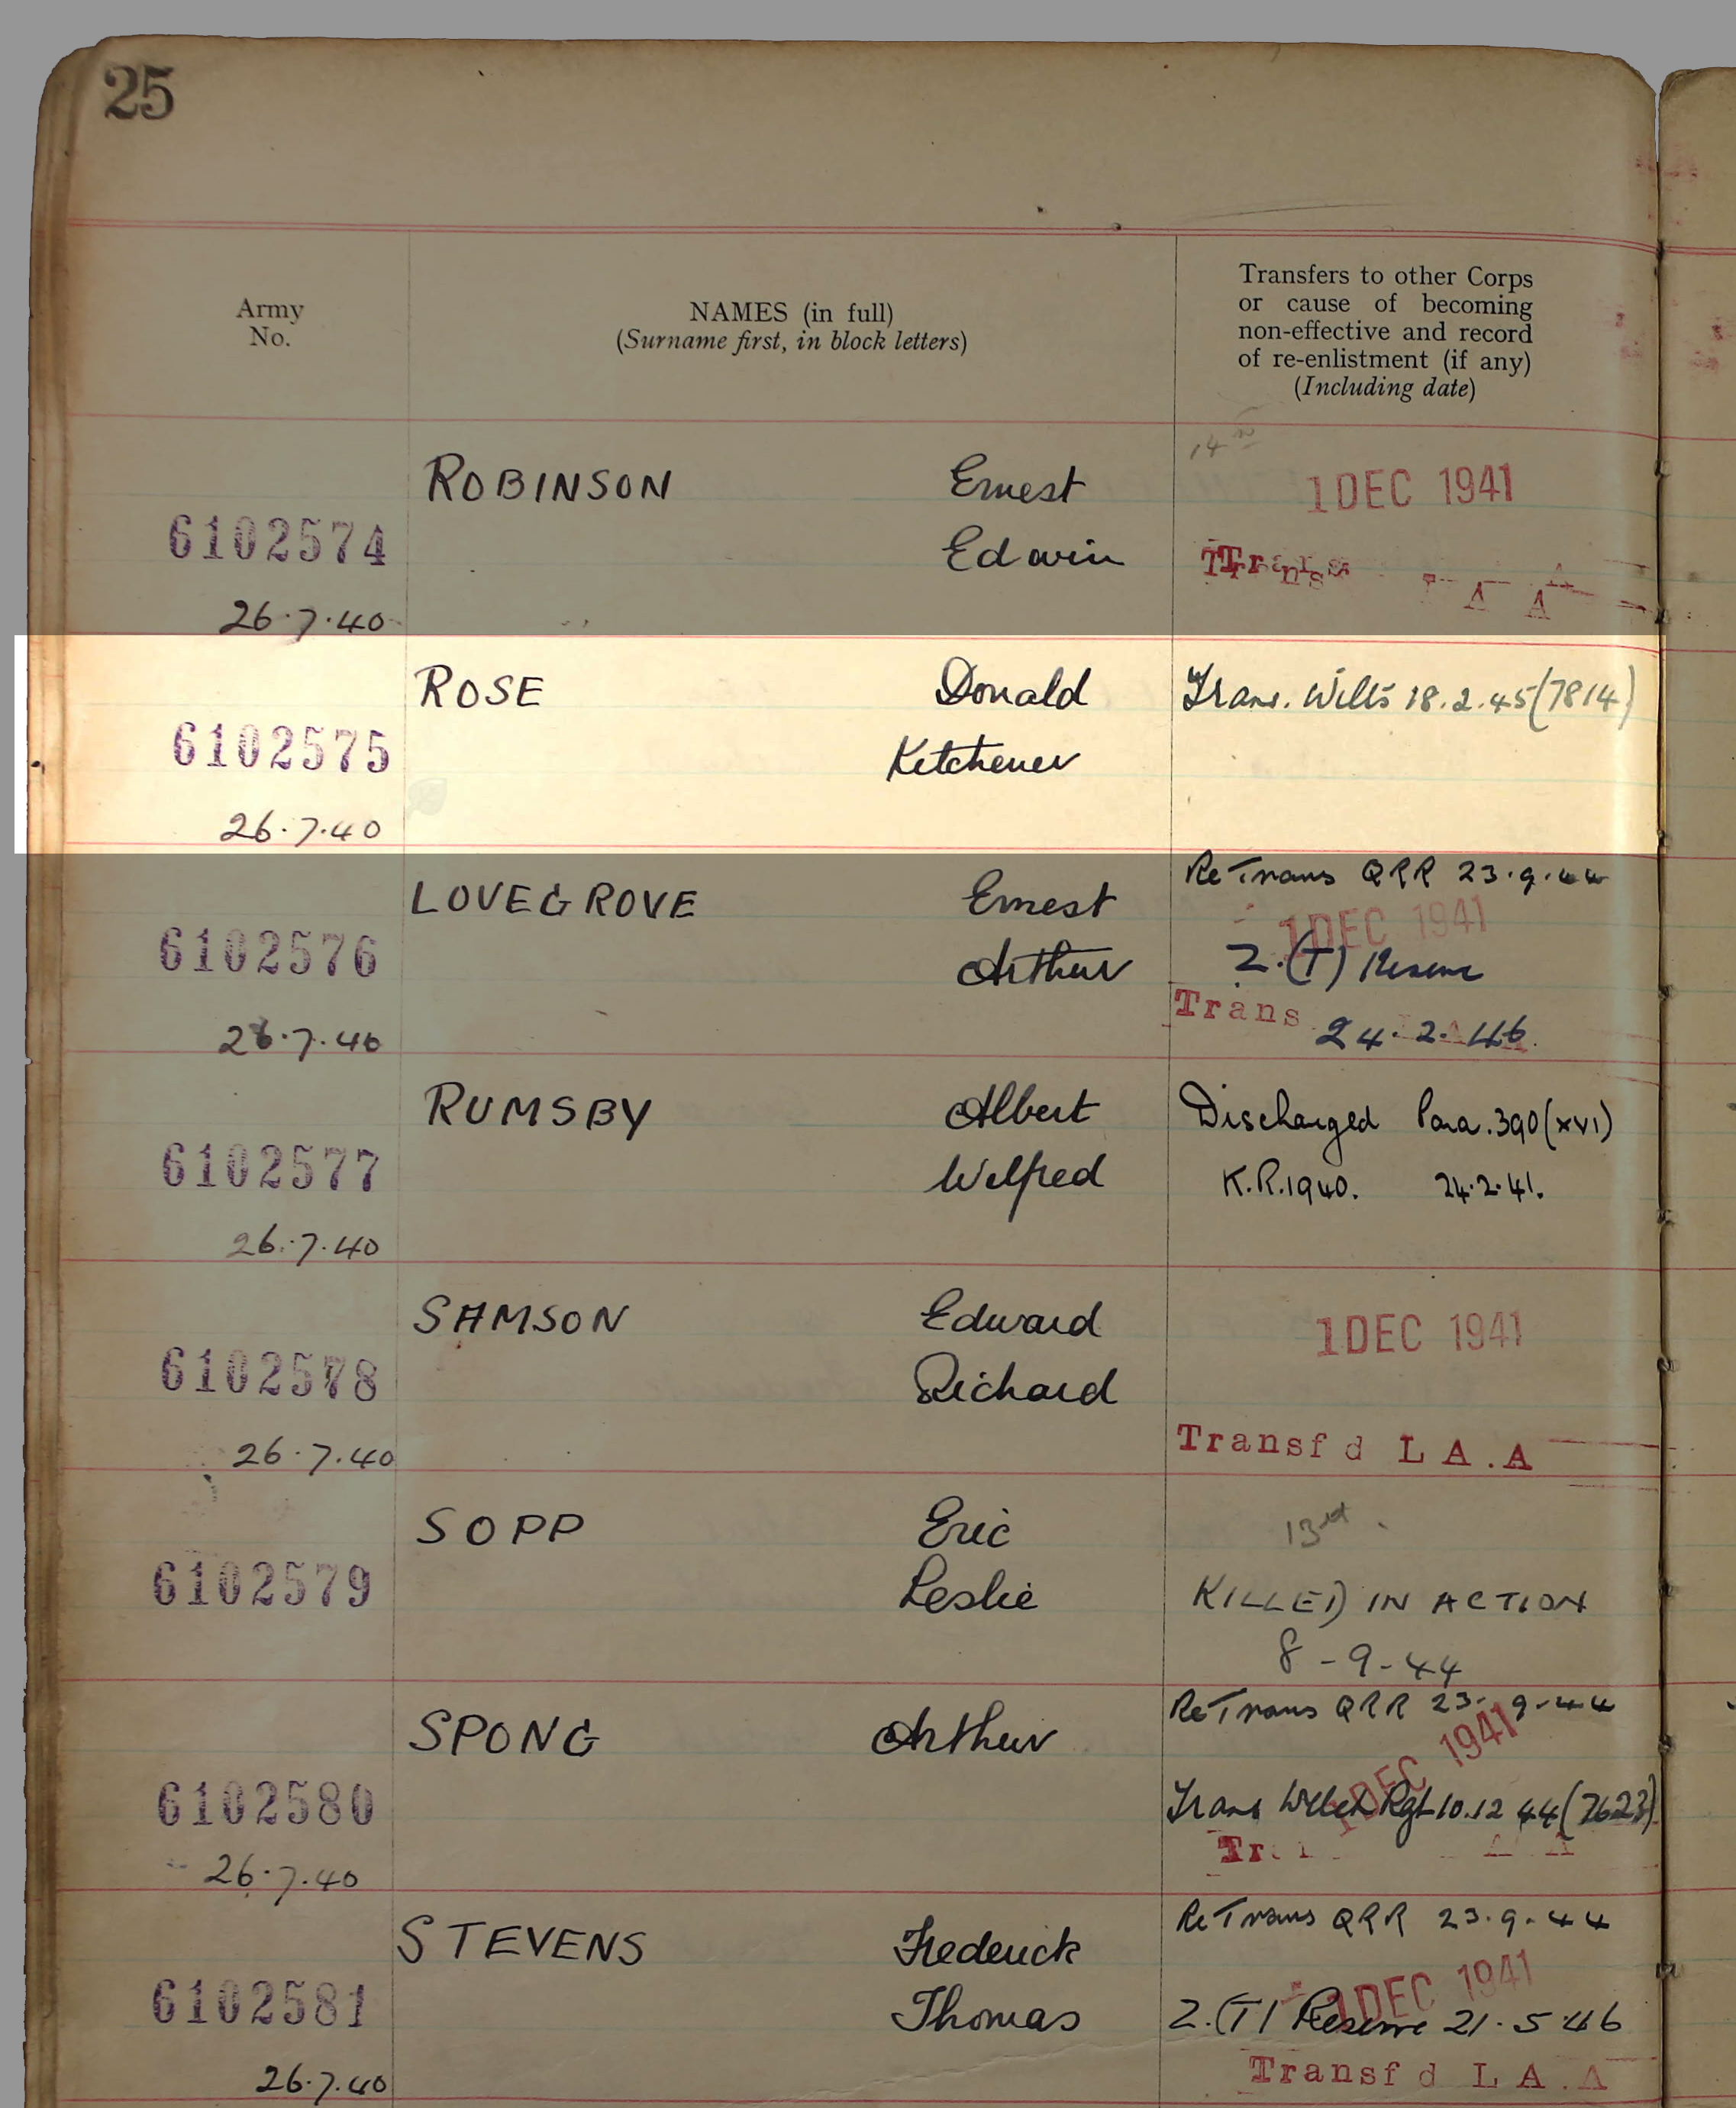 25
Army
No.
NAMES (in full)
(Surname first, in block letters)
Transfers to other Corps
or cause of becoming
non-effective and record
of re-enlistment (if any)
(Including date)
ROBINSON Ernest
Edwin
6102574
26.7.40
1 DEC 1941
ROSE Donald
Kitchener
6102575
26.7.40
Trans. Wilts 18.2.45 (7814)
LOVEGROVE Ernest
Arthur
6102576
26.7.40
Re Trans QRR 23.9.44
1 DEC 1941
Z.(T) Reserve
Trans
24.2.46
RUMSBY Albert
Wilfred
6102577
26.7.40
Discharged Para.390(xvi)
K.R.1940. 24.2.41.
SAMSON Edward
Richard
6102578
26.7.40
1 DEC 1941
Transf d L A.A
SOPP Eric
Leslie
6102579
KILLED IN ACTION
8-9-44
SPONG Arthur
6102580
26.7.40
Re Trans QRR 23-9-44
1 DEC 1941
Trans Welch Rgt 10.12 44 (7623)
STEVENS Frederick
Thomas
6102581
26.7.40
Re Trans QRR 23.9.44
1 DEC 1941
Z.(T) Reserve 21.5.46
Transf d L A.A